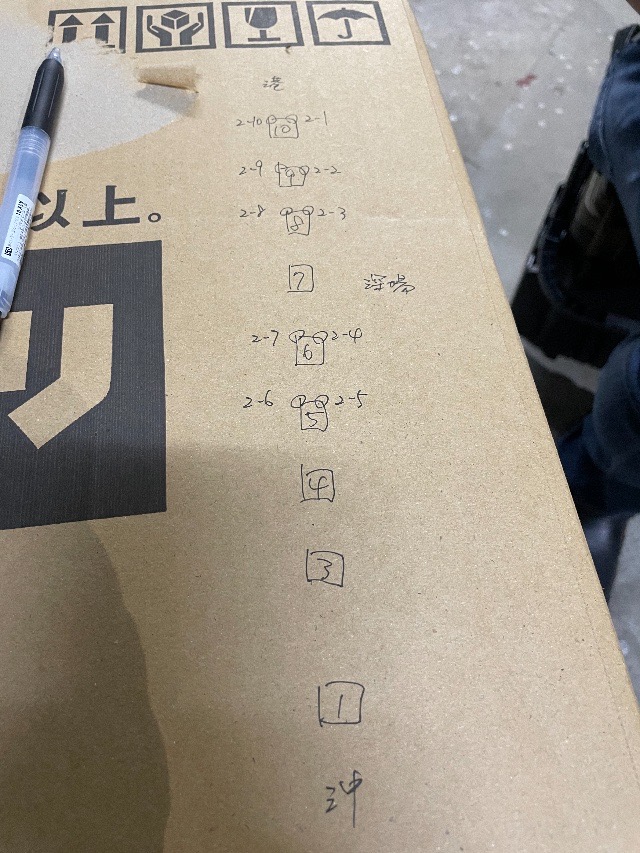 港
2-10 10 2-1
2-9 9 2-2
2-8 8 2-3
以上。
7 深場
2-7 6 2-4
2-6 5 2-5
4
3
1
沖